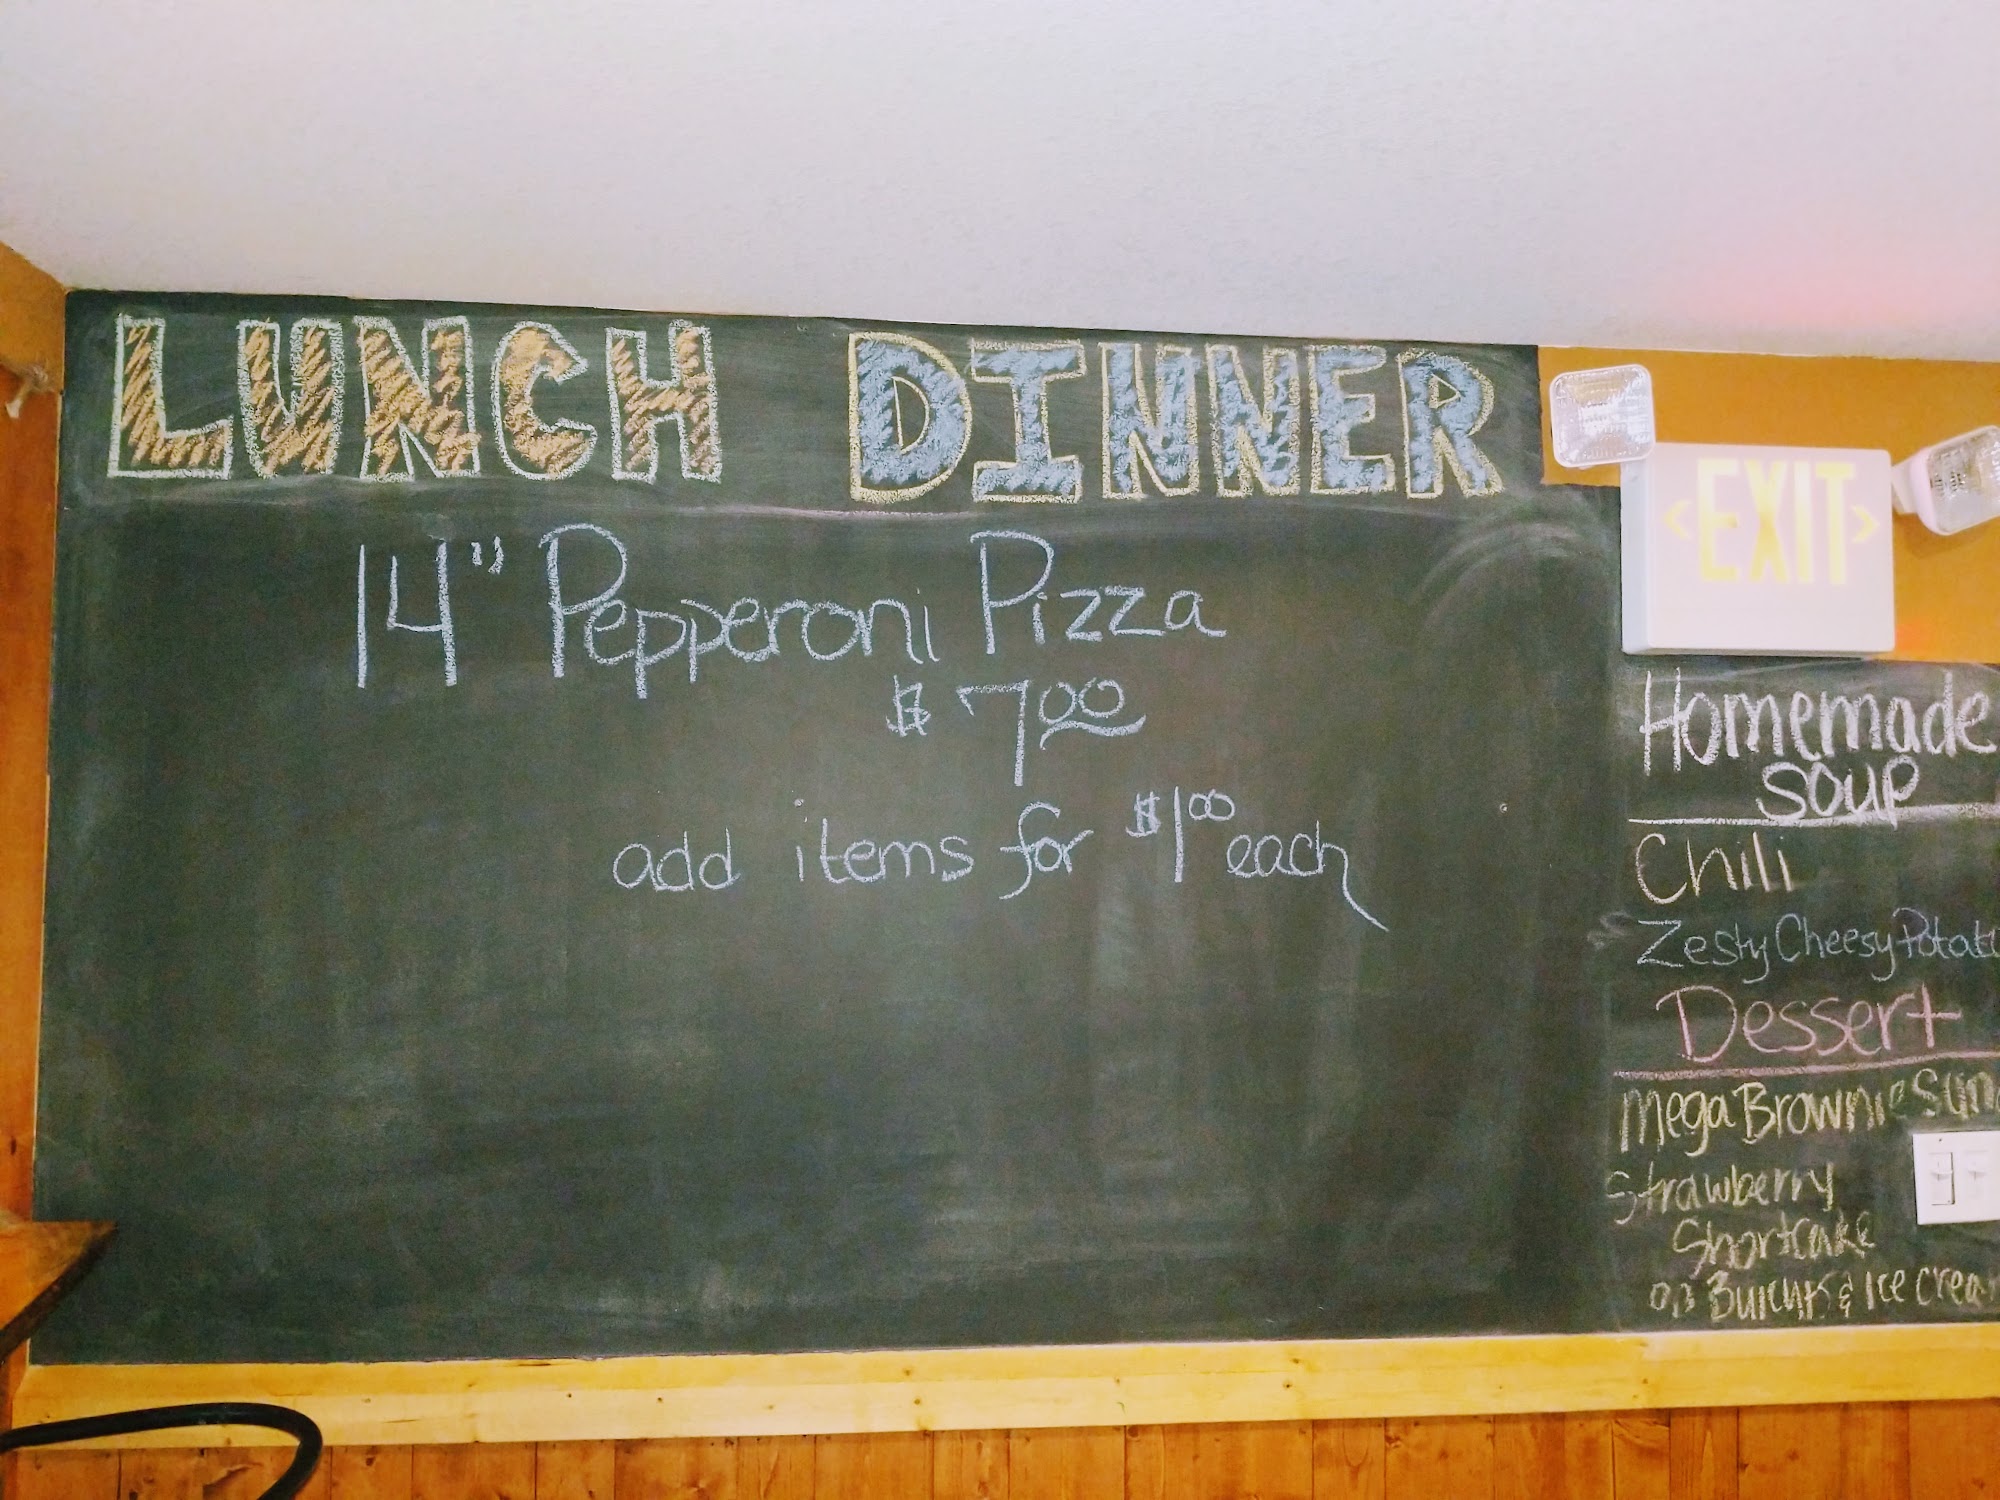 LUNCH DINNER
14" Pepperoni Pizza
$7.00
add items for $1.00 each
<EXIT>
Homemade
Soup
Chili
Zesty Cheesy
Dessert
Mega Brownie
Strawberry
Shortcake
&